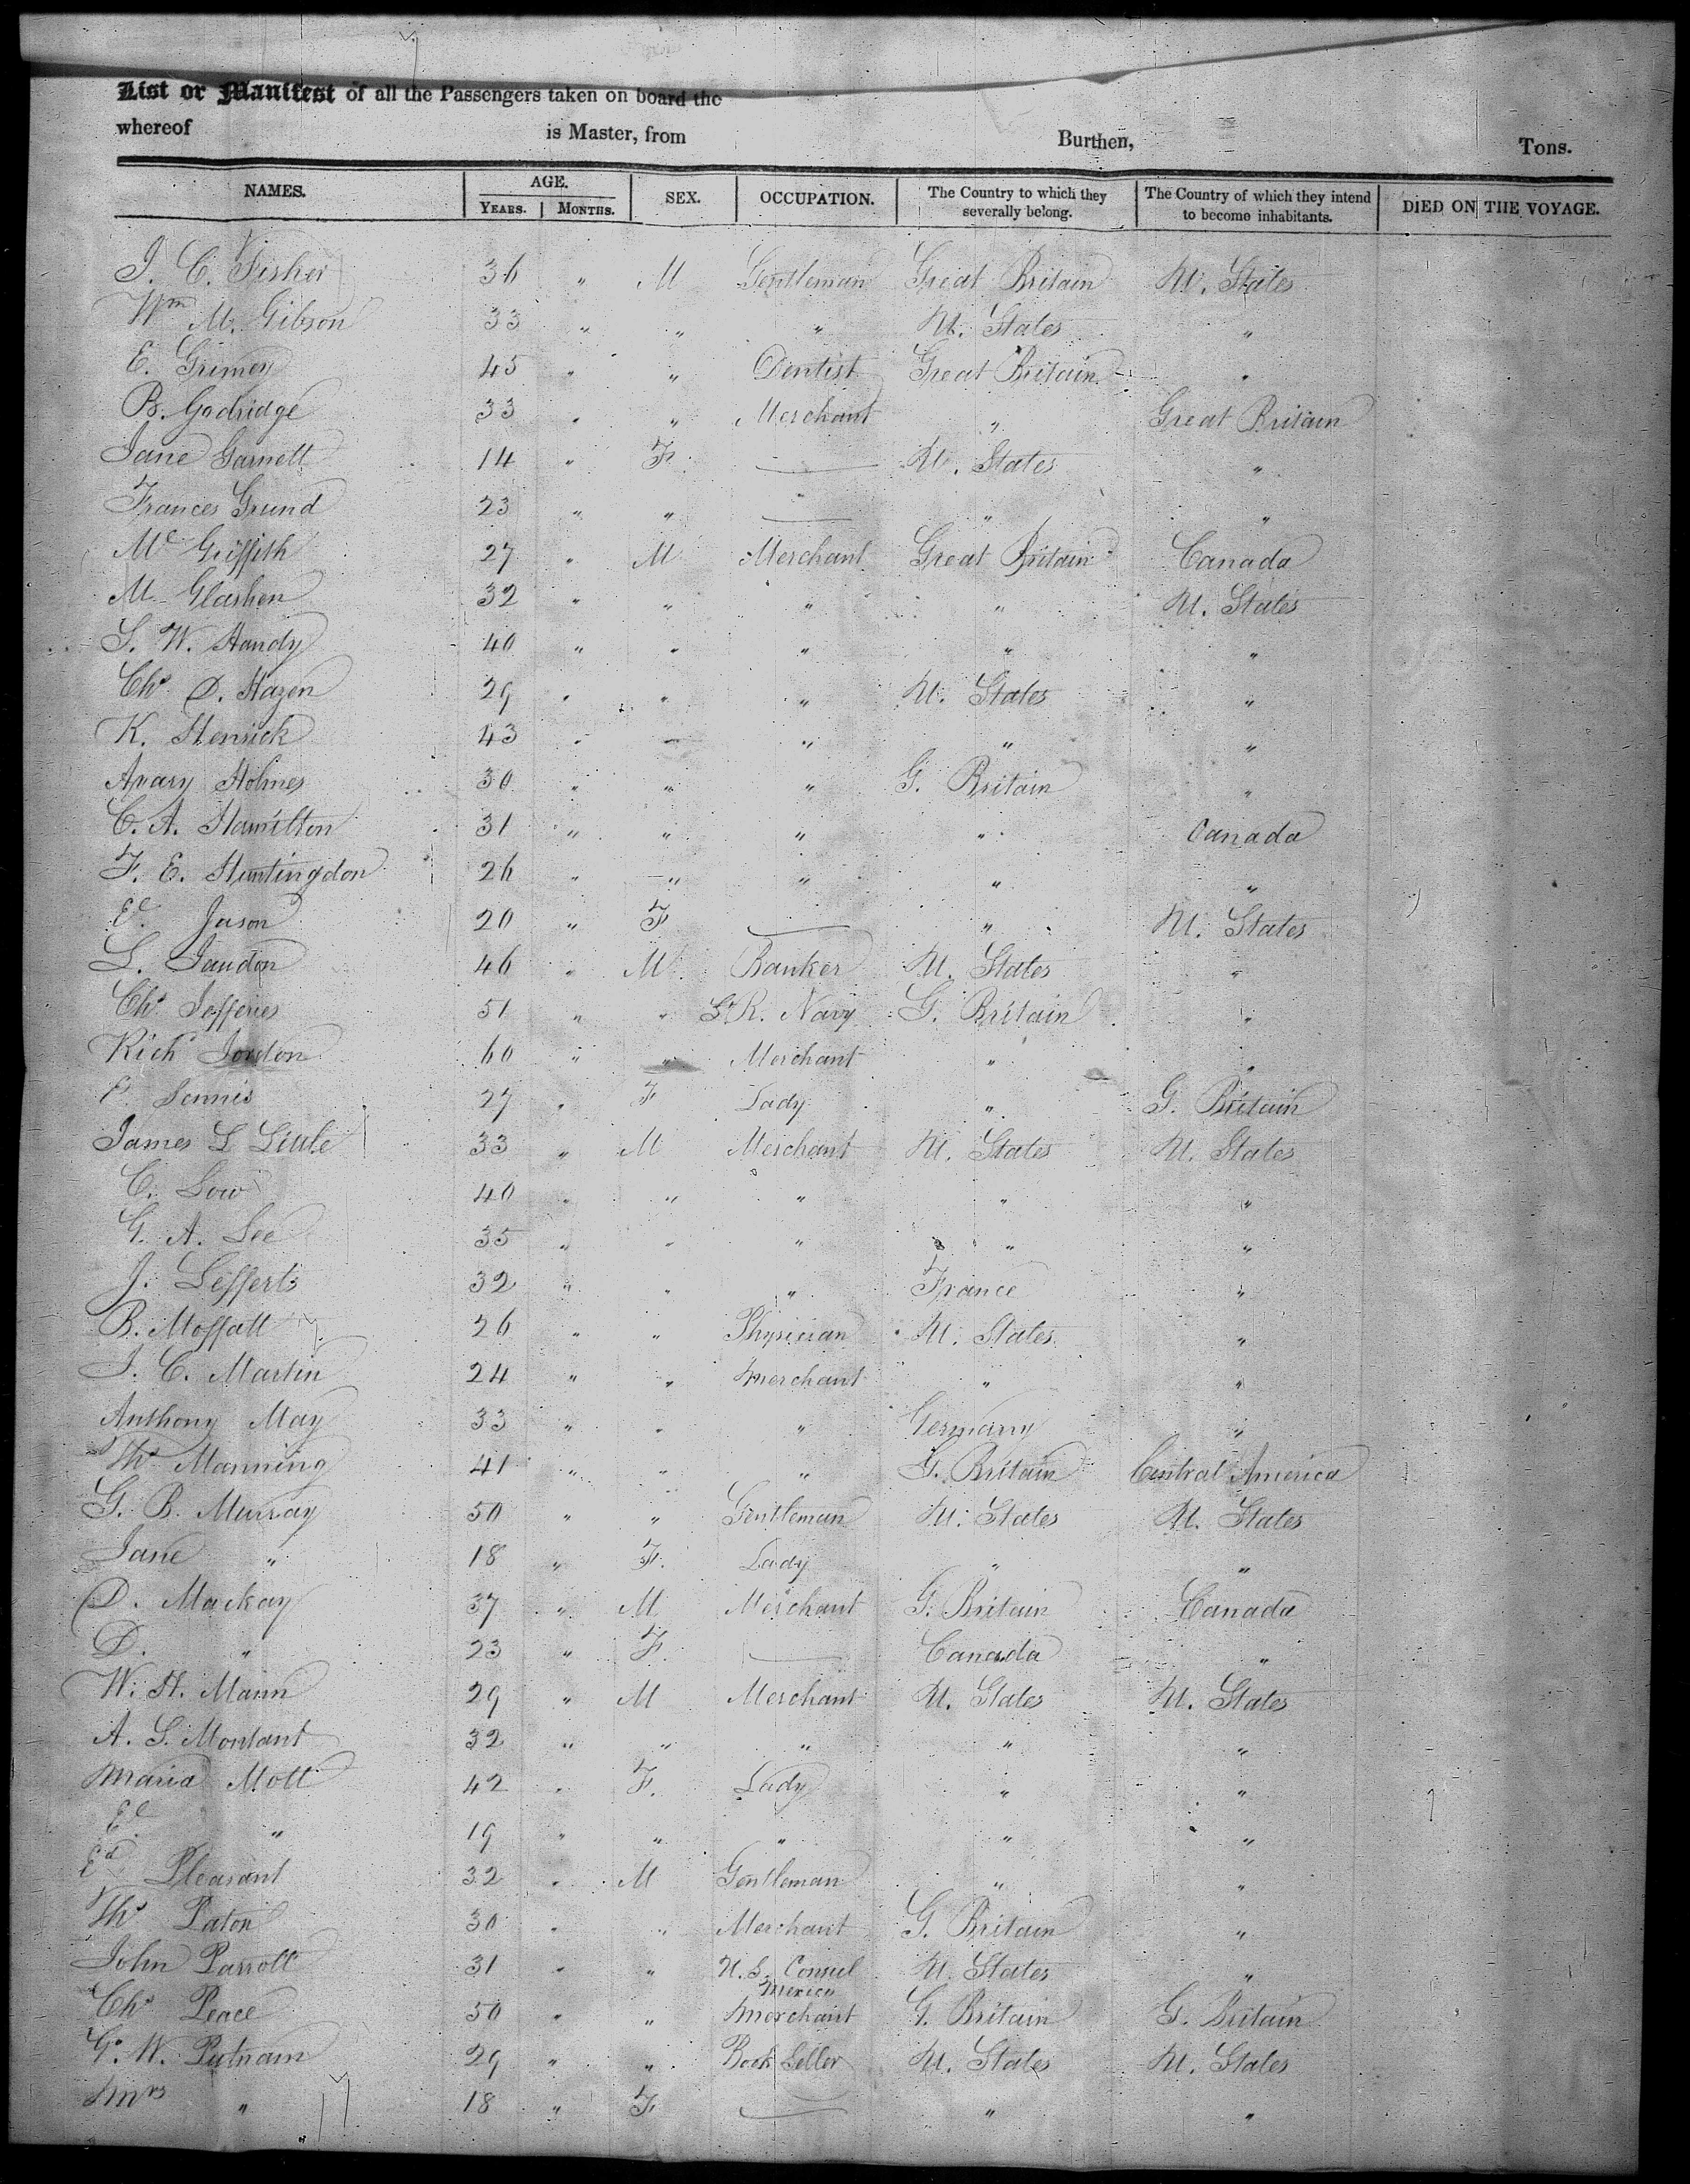 List or Manifest of all the Passengers taken on board the
whereof is Master, from Burthen, Tons.
NAMES. AGE. SEX. OCCUPATION. The Country to which they severally belong. The Country of which they intend to become inhabitants. DIED ON THE VOYAGE.
YEARS. MONTHS.
J. C. Fisher 36 " M Gentleman Great Britain U. States
Wm M. Gibson 33 " " " U. States "
E. Grimes 45 " " Dentist Great Britain "
B. Godridge 33 " " Merchant " Great Britain
Jane Garnett 14 " F — U. States "
Frances Grund 23 " " — " "
Mc Griffith 27 " M Merchant Great Britain Canada
M. Glashen 32 " " " " U. States
S. W. Handy 40 " " " " "
Chs D. Hazen 29 " " " U. States "
K. Hensick 43 " " " " "
Avary Holmes 30 " " " G. Britain "
C. A. Hamilton 31 " " " " Canada
F. E. Huntingdon 26 " " " " "
Jason 20 " F — " U. States
L. Jaudon 46 " M Banker U. States "
Chs Jefferies 51 " " Lt R. Navy G. Britain "
Richd Jordon 60 " " Merchant " "
27 " F Lady " G. Britain
James L 33 " M Merchant U. States U. States
C. Low 40 " " " " "
G. A. Lee 35 " " " " "
J. Lefferts 32 " " " France "
B. Moffatt 26 " " Physician U. States "
J. C. Martin 24 " " Merchant " "
Anthony May 33 " " " Germany "
Ths Manning 41 " " " G. Britain Central America
G. B. Murray 50 " " Gentleman U. States U. States
Jane " 18 " F. Lady " "
D. Mackay 37 " M Merchant G. Britain Canada
D. " 23 " F. — Canada "
W. H. Mann 29 " M Merchant U. States U. States
A. S. Montant 32 " " " " "
Maria Mott 42 " F. Lady " "
" 19 " " " " "
Ed Pleasant 32 " M Gentleman " "
Ths Paton 30 " " Merchant G. Britain "
John Parrott 31 " " U. S. Consul Mexico U. States "
Chs Peace 50 " " Merchant G. Britain G. Britain
Go. W. Putnam 29 " " Book Seller U. States U. States
Mrs " 18 " F — " "